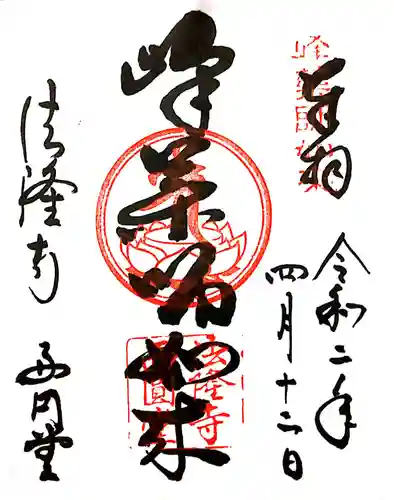 奉拝
令和二年
四月十二日
峰薬師如来
法隆寺
西円堂
峰薬師如来
法隆寺